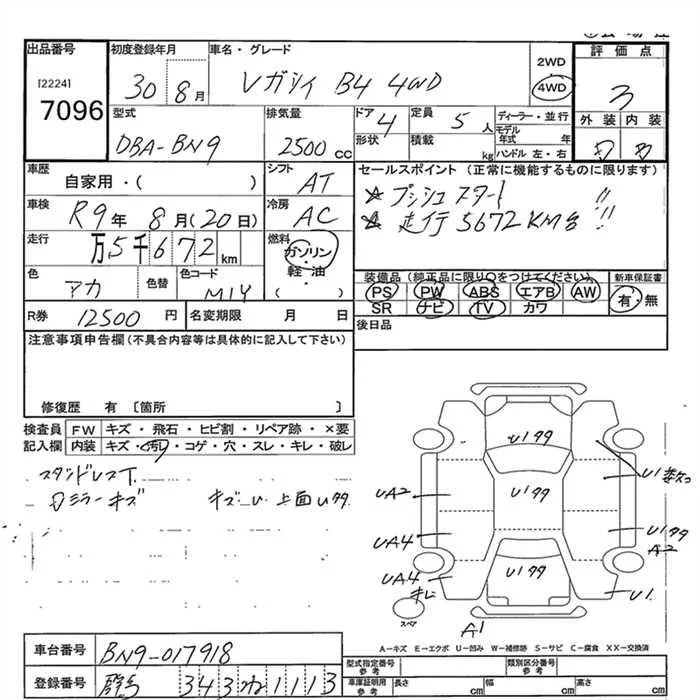 出品番号
[2224]
7096
初度登録年月
30 8月
車名・グレード
レガシィ B4 4WD
2WD
4WD
評価点
3
外装 内装
型式
DBA-BN9
排気量
2500cc
ドア 4
形状
定員 5人
積載 kg
ディーラー・並行
モデル年式 年
ハンドル 左・右
車歴
自家用・( )
シフト
AT
車検
R9年 8月(20日)
冷房
AC
走行
万5千672km
燃料
ガソリン
軽・油
( )
色
アカ
色替
色コード
M1Y
R券 12500円
名変期限 月 日
セールスポイント (正常に機能するものに限ります)
☆ プッシュスタート!!
☆ 走行5672KM台!!
装備品(純正品に限り○をつけてください)
PS PW ABS エアB AW
SR ナビ TV カワ
新車保証書
有・無
後日品
注意事項申告欄(不具合内容等は具体的に記入して下さい)
修復歴 有 〔箇所 〕
検査員記入欄
FW キズ・飛石・ヒビ割・リペア跡・×要
内装 キズ・汚れ・コゲ・穴・スレ・キレ・破レ
ミラーキズ
上面
U1
UA2
UA4
UA4
キレ
U1
A2
U1
A1
スペア
A-キズ E-エクボ U-凹み W-補修跡 S-サビ C-腐食 XX-交換済
車台番号 BN9-017918
登録番号 343 1113
型式指定番号 参考
類別区分番号 参考
車庫証明用 参考
長さ cm
幅 cm
高さ cm